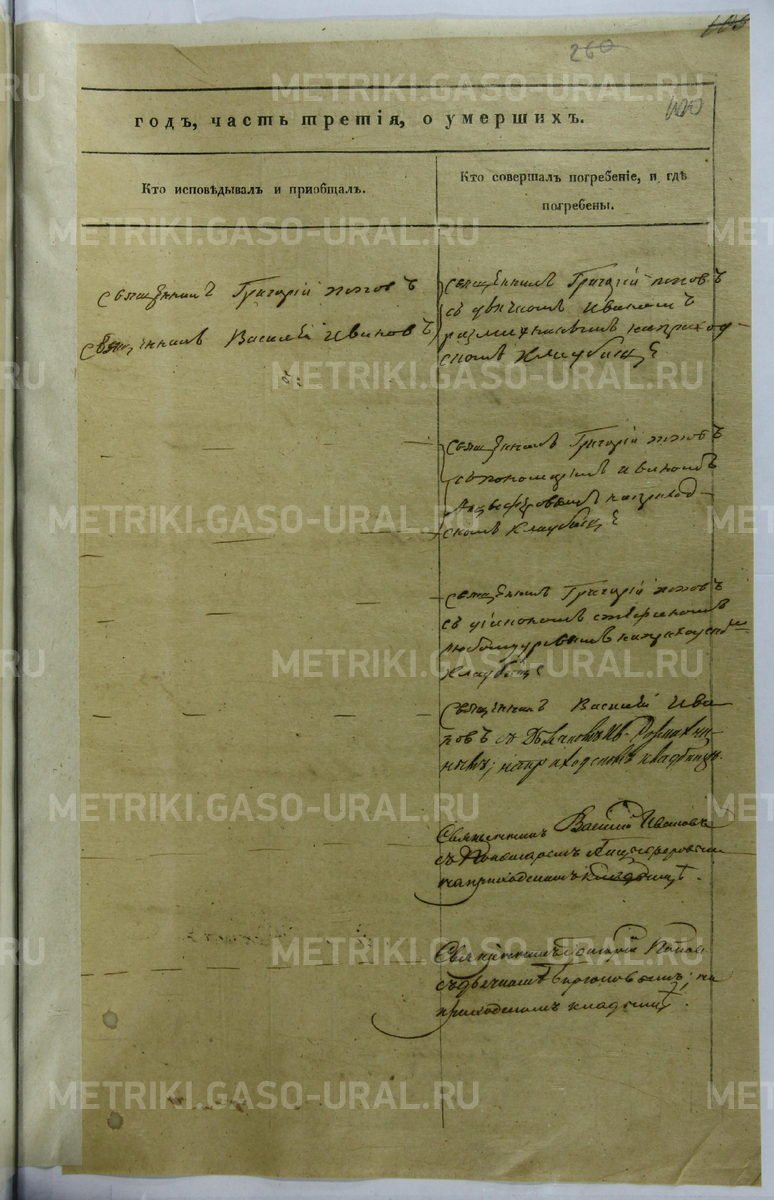 260
METRIKI.GASO-URAL.RU
годъ, часть третія, о умершихъ.
Кто исповѣдывалъ и пріобщалъ.
Кто совершалъ погребеніе, и гдѣ
погребены.
Священникъ Григорій Поповъ
Священникъ Василій Ивановъ
Священникъ Григорій Поповъ
съ дьячкомъ Иваномъ
на приход-
скомъ кладбищѣ
Священникъ Григорій Поповъ
съ пономаремъ Иваномъ
на приход-
скомъ кладбищѣ
Священникъ Григорій Поповъ
съ діакономъ Стефаномъ
Любомудровымъ на приходском
кладбищѣ
Священникъ Василій Ива-
новъ съ
на приходскомъ кладбищѣ.
Священникъ Василій Ивановъ
съ Пономаремъ
на приходскомъ кладбищѣ.
Священникъ Григорій Попов
съ дьячкомъ на
приходскомъ кладбищѣ.